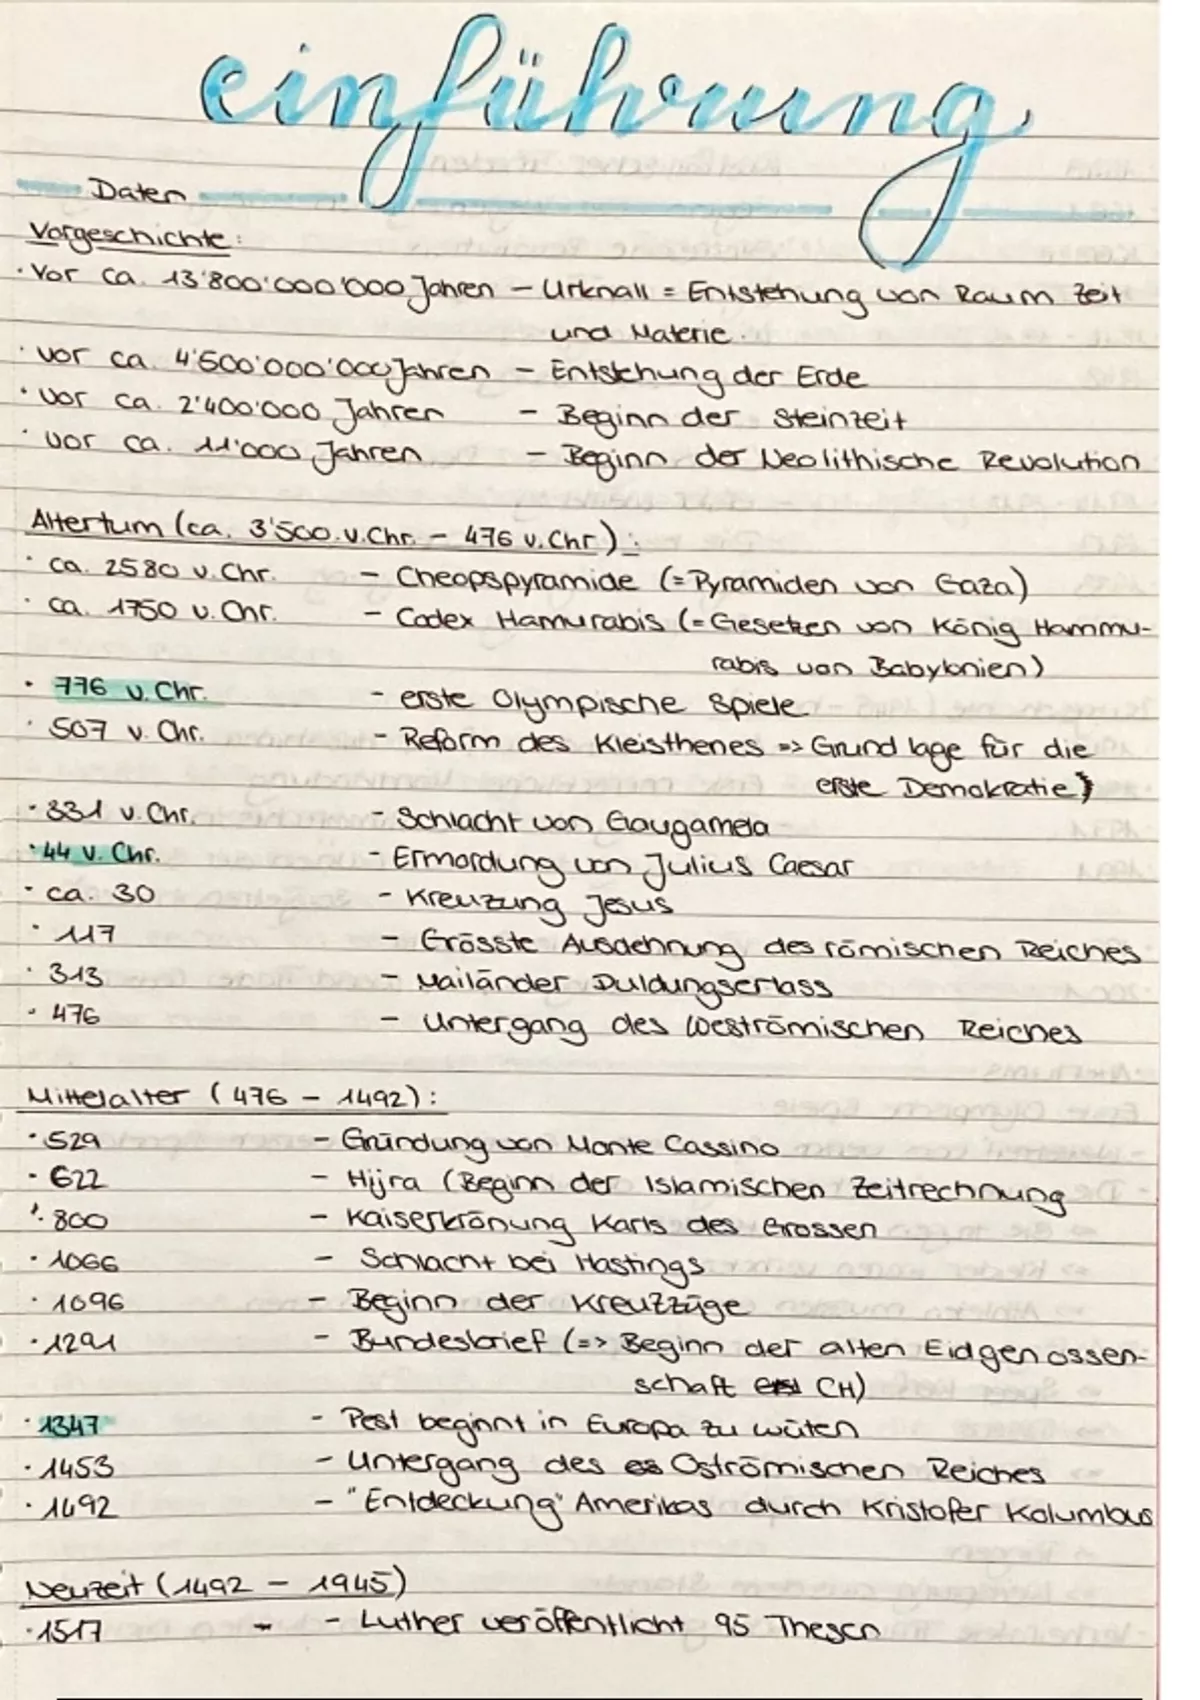 einführung
Daten
Vorgeschichte:
· Vor ca. 13'800'000'000 Jahren – Urknall = Entstehung von Raum Zeit
und Materie.
· vor ca. 4'600'000'000 Jahren – Entstehung der Erde
· vor ca. 2'400'000 Jahren – Beginn der Steinzeit
· vor ca. 11'000 Jahren – Beginn der Neolithische Revolution
Altertum (ca. 3'500 v.Chr. – 476 v.Chr.):
· ca. 2580 v.Chr. – Cheopspyramide (=Pyramiden von Gaza)
· ca. 1750 v.Chr. – Codex Hamurabis (=Gesetzen von König Hammu-
rabis von Babylonien)
· 776 v.Chr. – erste Olympische Spiele
· 507 v.Chr. – Reform des Kleisthenes => Grundlage für die
erste Demokratie)
· 331 v.Chr. – Schlacht von Gaugamela
· 44 v.Chr. – Ermordung von Julius Caesar
· ca. 30 – Kreuzung Jesus
· 117 – Grösste Ausdehnung des römischen Reiches
· 313 – Mailänder Duldungserlass
· 476 – Untergang des Weströmischen Reiches
Mittelalter (476 – 1492):
· 529 – Gründung von Monte Cassino
· 622 – Hijra (Beginn der Islamischen Zeitrechnung
· 800 – Kaiserkrönung Karls des Grossen
· 1066 – Schlacht bei Hastings
· 1096 – Beginn der Kreuzzüge
· 1291 – Bundesbrief (=> Beginn der alten Eidgenossen-
schaft CH)
· 1347 – Pest beginnt in Europa zu wüten
· 1453 – Untergang des Oströmischen Reiches
· 1492 – "Entdeckung" Amerikas durch Kristofer Kolumbus
Neuzeit (1492 – 1945)
· 1517 – – Luther veröffentlicht 95 Thesen